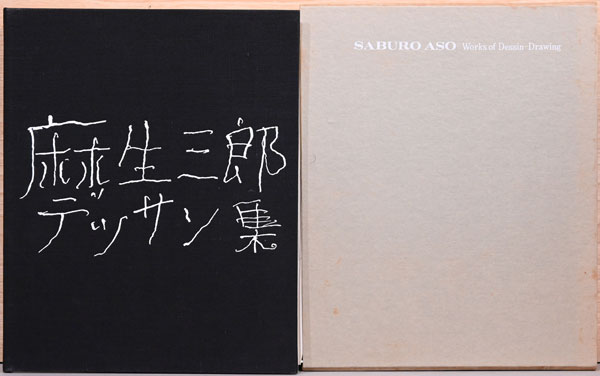 麻生三郎
デッサン集
SABURO ASO Works of Dessin-Drawing